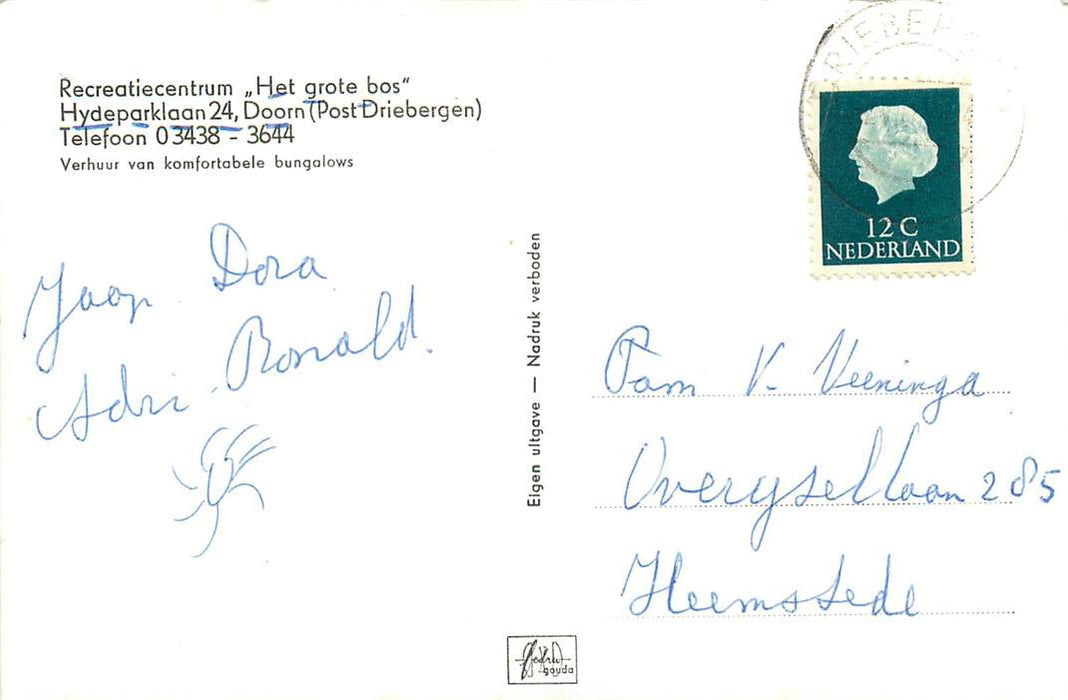 Recreatiecentrum „Het grote bos“
Hydeparklaan 24, Doorn (Post Driebergen)
Telefoon 03438 - 3644
Verhuur van komfortabele bungalows
Jaap Dora
Adri Ronald.
Eigen uitgave — Nadruk verboden
DRIEBE
12 C
NEDERLAND
Fam V. Veeninga
Overysellaan 285
Heemstede
gouda